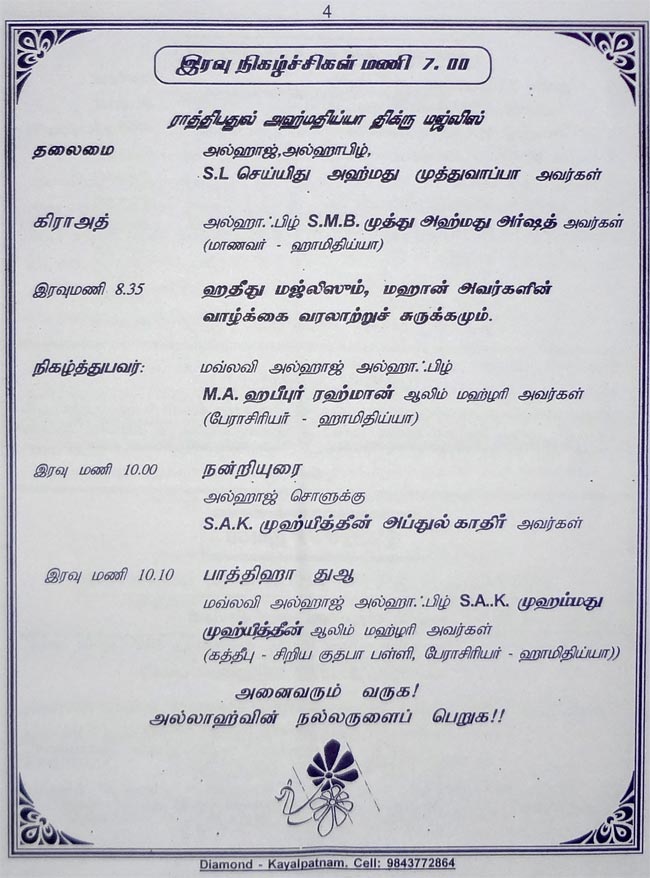 4
இரவு நிகழ்ச்சிகள் மணி 7. 00
ராத்திபதுல் அஹ்மதிய்யா திக்ரு மஜ்லிஸ்
தலைமை அல்ஹாஜ்,அல்ஹாபிழ்,
S.L செய்யிது அஹ்மது முத்துவாப்பா அவர்கள்
கிராஅத் அல்ஹாஃபிழ் S.M.B. முத்து அஹ்மது அர்ஷத் அவர்கள்
(மாணவர் - ஹாமிதிய்யா)
இரவுமணி 8.35 ஹதீது மஜ்லிஸும், மஹான் அவர்களின்
வாழ்க்கை வரலாற்றுச் சுருக்கமும்.
நிகழ்த்துபவர்: மவ்லவி அல்ஹாஜ் அல்ஹாஃபிழ்
M.A. ஹபீபுர் ரஹ்மான் ஆலிம் மஹ்ழரி அவர்கள்
(பேராசிரியர் - ஹாமிதிய்யா)
இரவு மணி 10.00 நன்றியுரை
அல்ஹாஜ் சொளுக்கு
S.A.K. முஹ்யித்தீன் அப்துல் காதிர் அவர்கள்
இரவு மணி 10.10 பாத்திஹா துஆ
மவ்லவி அல்ஹாஜ் அல்ஹாஃபிழ் S.A..K. முஹம்மது
முஹ்யித்தீன் ஆலிம் மஹ்ழரி அவர்கள்
(கத்தீபு - சிறிய குதபா பள்ளி, பேராசிரியர் - ஹாமிதிய்யா))
அனைவரும் வருக!
அல்லாஹ்வின் நல்லருளைப் பெறுக!!
Diamond - Kayalpatnam. Cell: 9843772864